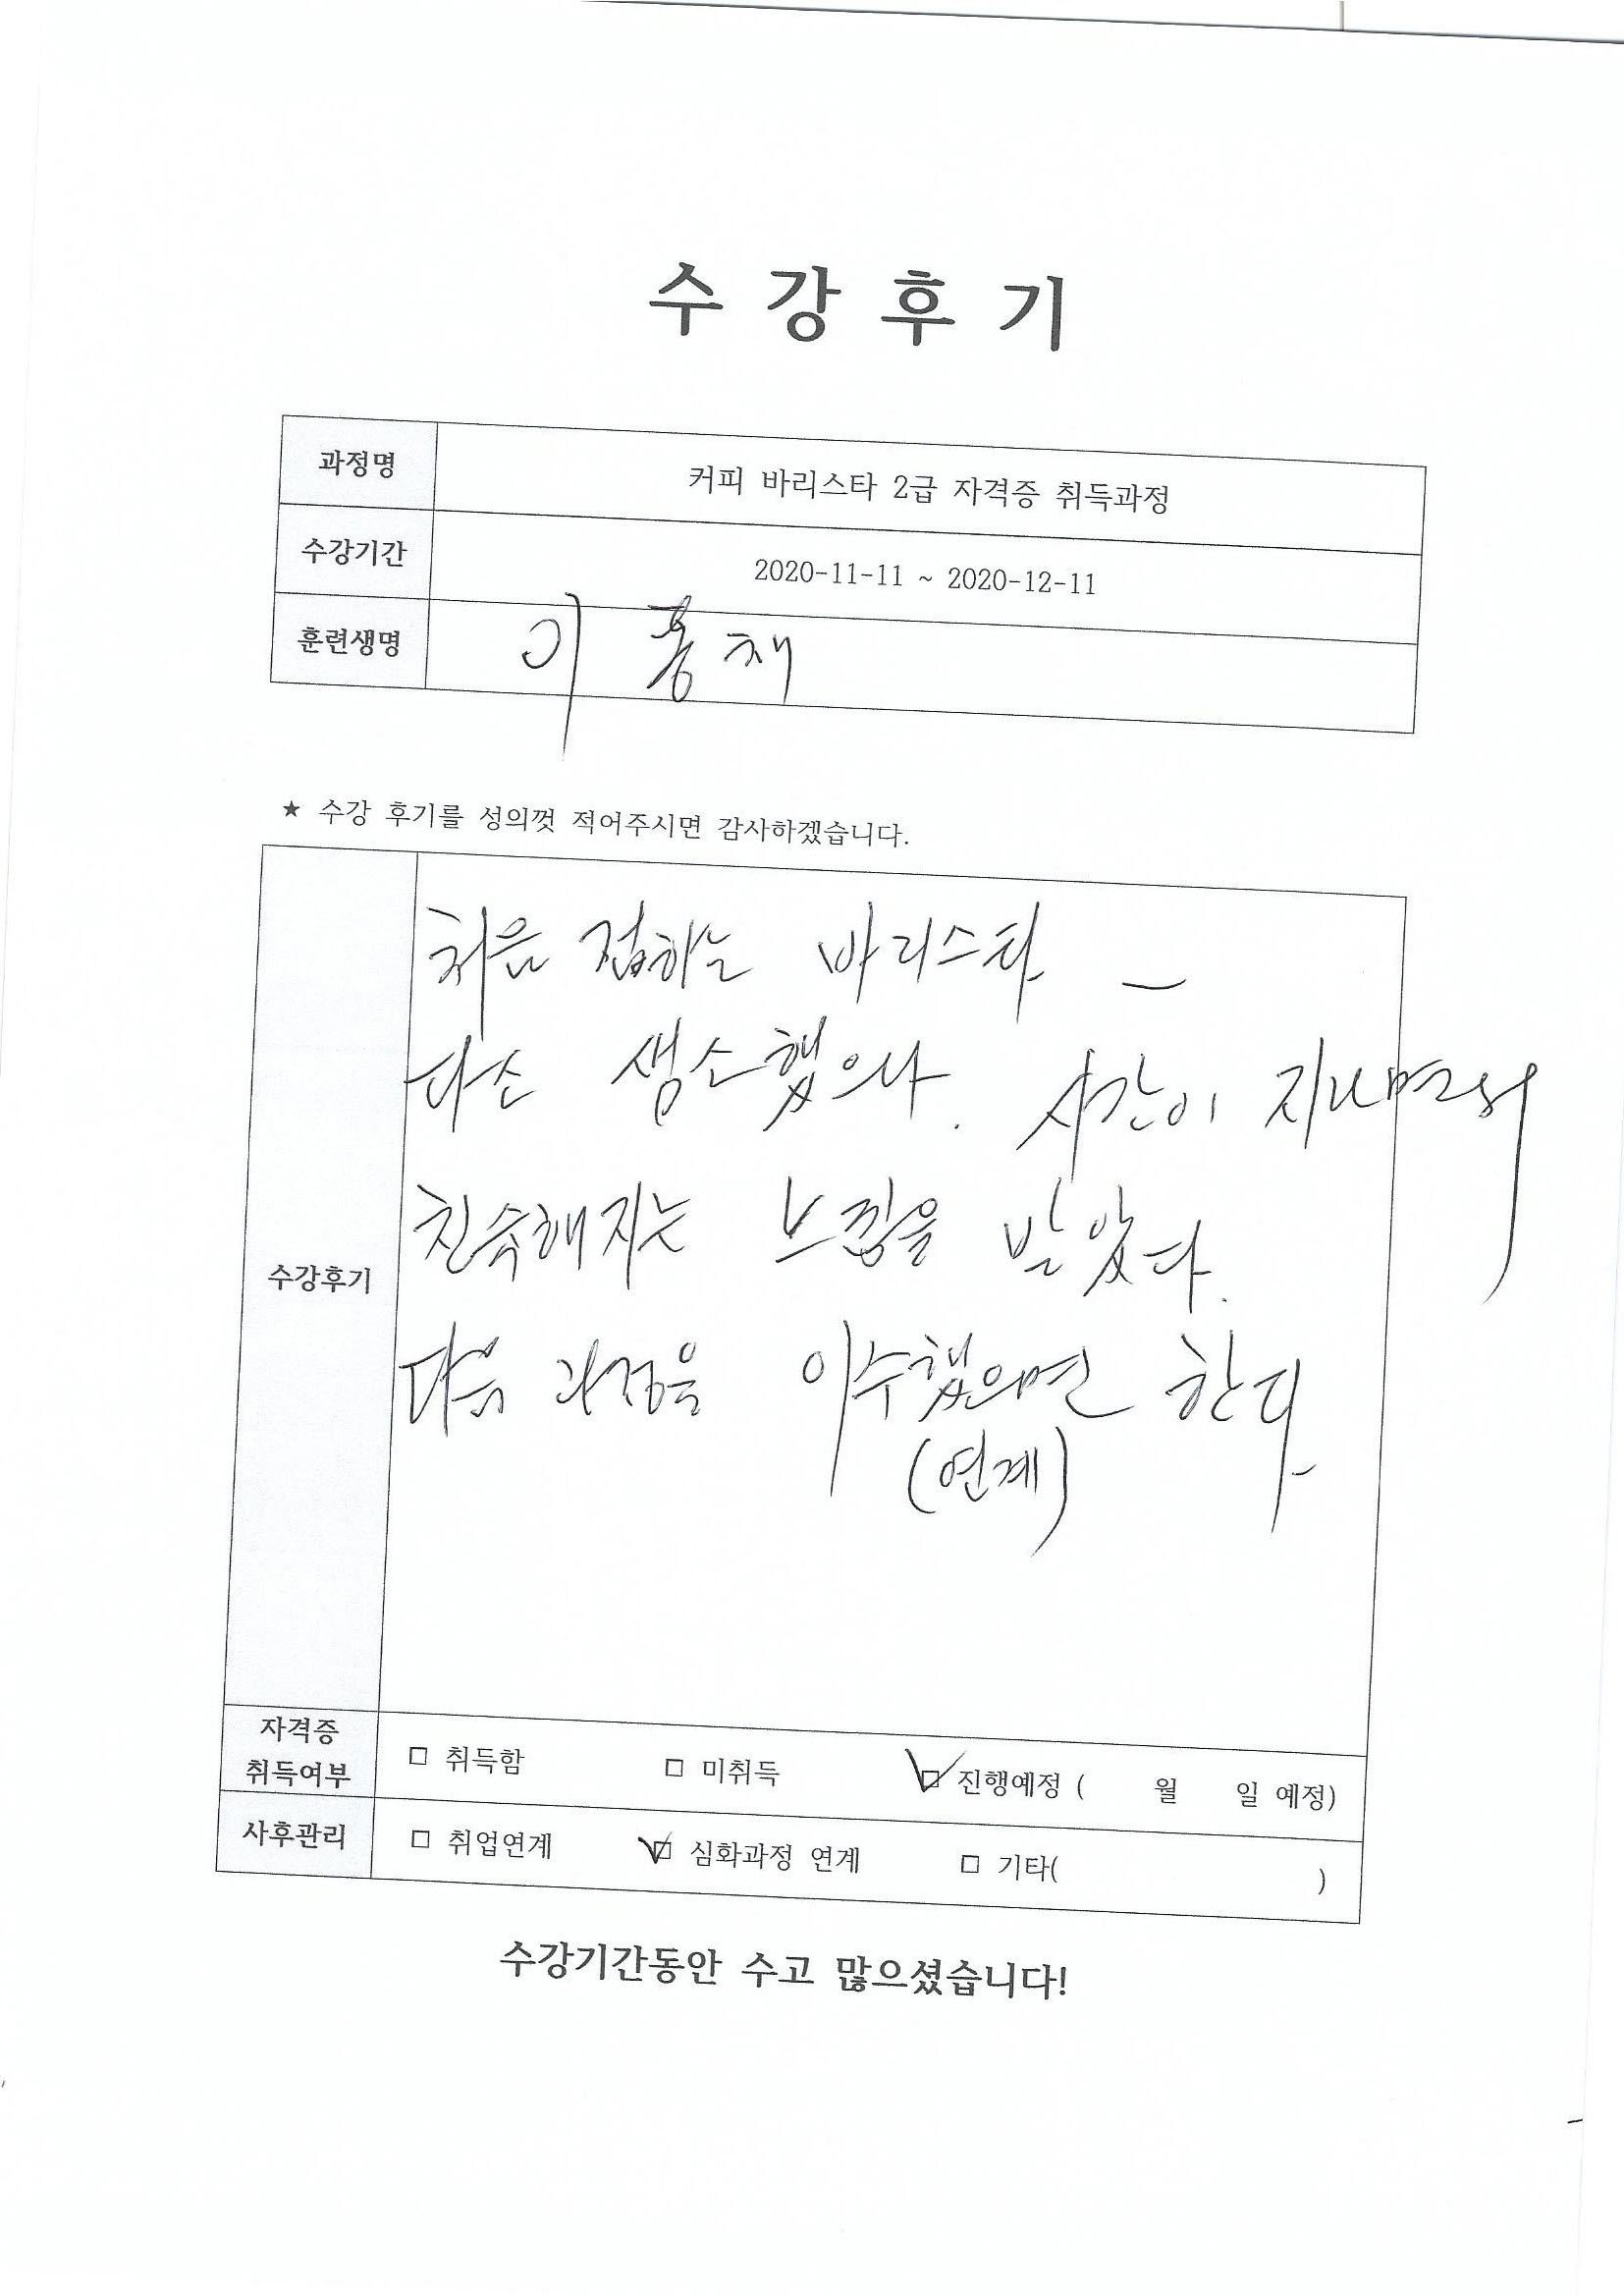 수 강 후 기
과정명 커피 바리스타 2급 자격증 취득과정
수강기간 2020-11-11 ~ 2020-12-11
훈련생명 이 홍 재
★ 수강 후기를 성의껏 적어주시면 감사하겠습니다.
수강후기
처음 접하는 바리스타 -
다소 생소했으나. 시간이 지나면서
친숙해지는 느낌을 받았다.
다음 과정을 이수했으면 한다
(연계)
자격증
취득여부 □ 취득함 □ 미취득 ☑ 진행예정 ( 월 일 예정)
사후관리 □ 취업연계 ☑ 심화과정 연계 □ 기타( )
수강기간동안 수고 많으셨습니다!